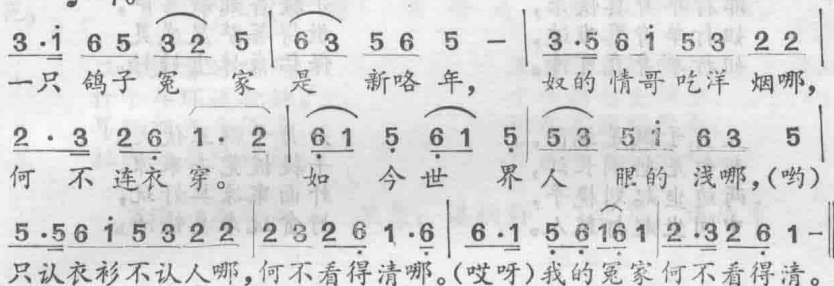 3·i 6 5 3 2 5 | 6 3 5 6 5 – | 3·5 6 i 5 3 2 2 |
一只 鸽子 冤 家 是 新咯 年, 奴的 情哥 吃洋 烟哪,
2·3 2 6 1·2 | 6 1 5 6 1 5 | 5 3 5 i 6 3 5 |
何 不 连衣 穿。 如 今 世 界 人 眼的 浅哪,(哟)
5·5 6 i 5 3 2 2 | 2 3 2 6 1·6 | 6·1 5 6 1 6 1 | 2·3 2 6 1 – ‖
只认衣衫不认人哪,何不看得清哪。(哎呀)我的冤家何不看得清。